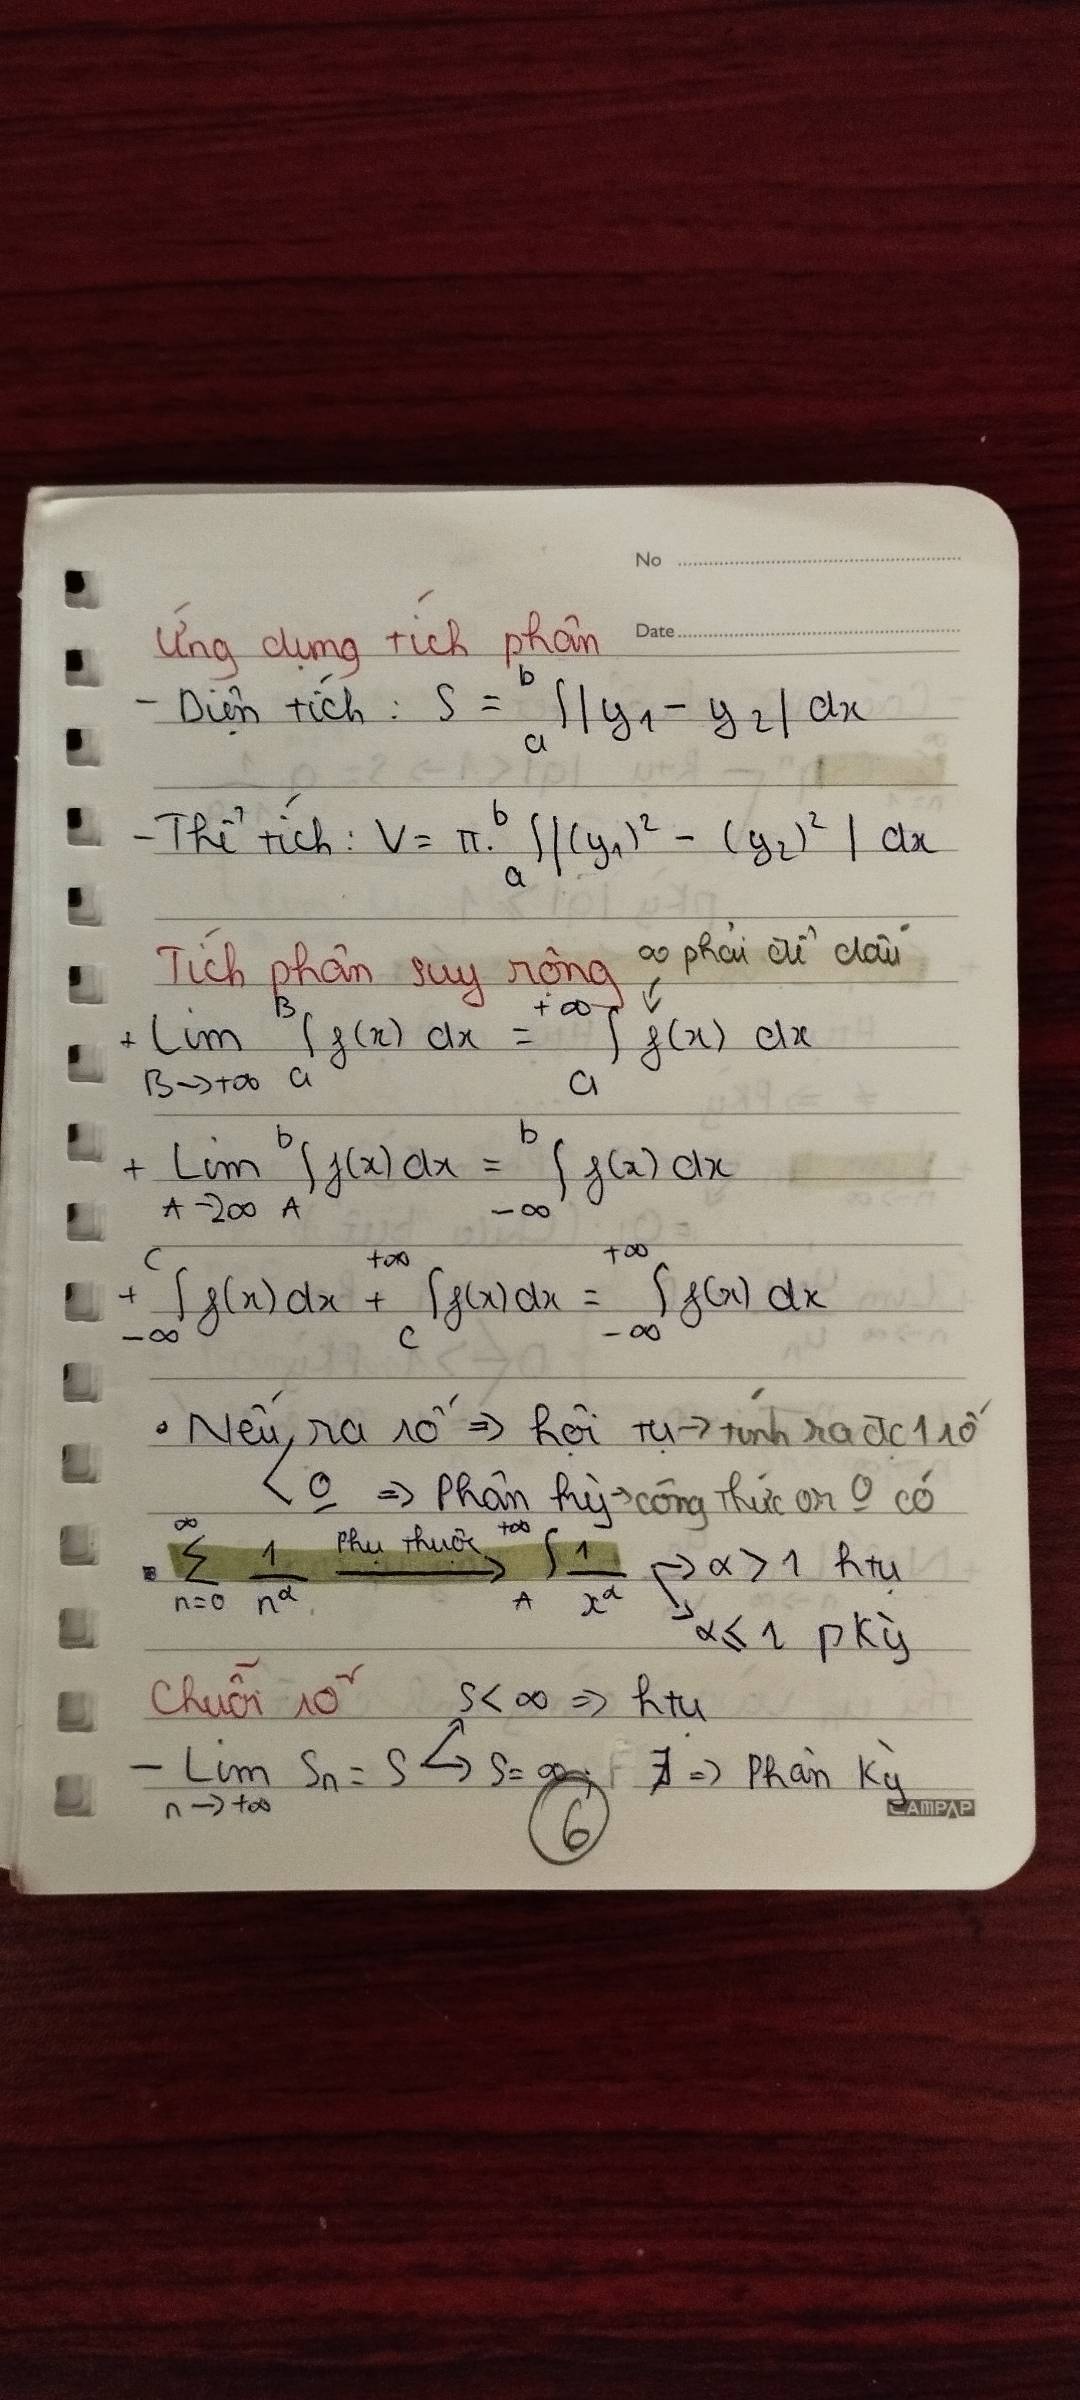 No
Ứng dụng tích phân Date
- Diện tích : S = ᵇₐ∫|y₁ - y₂| dx
- Thể tích : V = π.ᵇₐ∫|(y₁)² - (y₂)²| dx
Tích phân suy rộng ∞ phải để dấu
+ Lim B→+∞ ᴮₐ∫f(x) dx = +∞ ₐ∫ f(x) dx
+ Lim A→-∞ ᵇ_A∫f(x) dx = ᵇ_-∞∫ f(x) dx
+ ᶜ_-∞∫f(x) dx + ^+∞_c∫f(x) dx = ^+∞_-∞∫f(x) dx
• Nếu ra số => hội tụ → tính ra đc 1 số
< 0 => Phân kỳ → công thức 0 có
∞ Σ n=0 1/n^α phụ thuộc → ^+∞_A∫ 1/x^α → α > 1 htụ
→ α ≤ 1 pkỳ
Chuỗi số S < ∞ => htụ
- Lim n→+∞ Sn = S → S = ∞ ; ∄ => Phân kỳ
6
CAMPAP